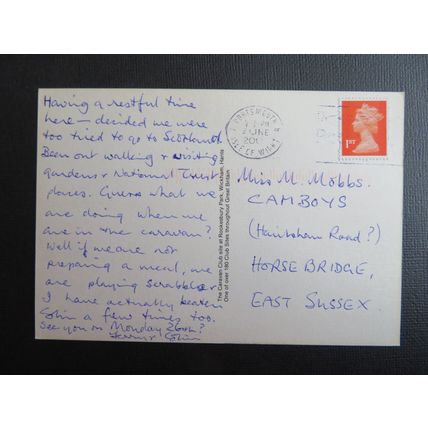 Having a restful time
here – decided we were
too tried to go to Scotland.
Been out walking & visiting
gardens & National Trust
places. Guess what we
are doing when we
are in the caravan?
Well if we are not
preparing a meal, we
are playing Scrabble &
I have actually beaten
Colin a few times too.
See you on Monday 26th?
Colin
The Caravan Club site at Rookesbury Park, Wickham, Hants
One of over 180 Club Sites throughout Great Britain
PORTSMOUTH &
JUNE
ISLE OF WIGHT
1ST
Miss M. Mobbs.
CAMBOYS
(Hailsham Road?)
HORSEBRIDGE,
EAST SUSSEX